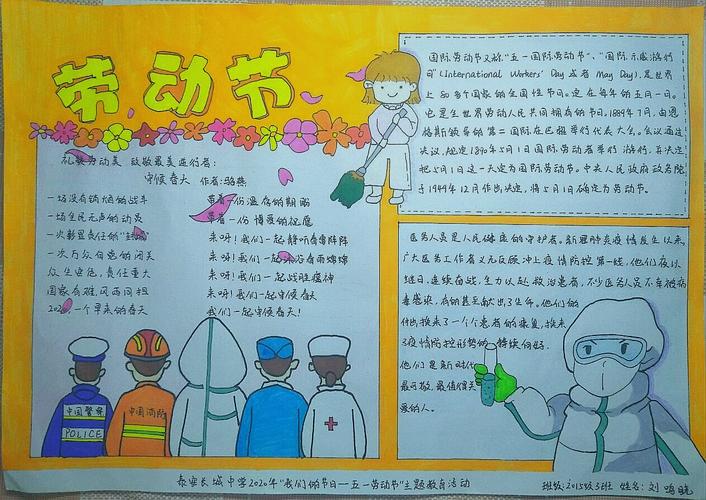 劳动节
礼赞劳动美 致敬最美逆行者:
守候春天 作者:骆燕
一场没有硝烟的战斗
一场全民无声的动员
一次彰显责任的"封城"
一次万众自觉的闭关
众生平危,责任重大
国家有难,风雨同担
2020,一个早来的春天
带着一份温存的期盼
带着一份博爱的祝愿
来呀!我们一起静听春雷阵阵
来呀!我们一起沐浴春雨绵绵
来呀!我们一起战胜瘟神
来呀!我们一起守候春天
我们一起守候春天!
国际劳动节又称"五一国际劳动节"、"国际示威游行
日"(International Workers' Day 或者 May Day),是世界
上80多个国家的全国性节日。定在每年的五月一日。
它是全世界劳动人民共同拥有的节日。1889年7月,由恩
格斯领导的第二国际在巴黎举行代表大会。会议通过
决议,规定1890年5月1日国际劳动者举行游行,并决定
把5月1日这一天定为国际劳动节。中央人民政府政务院
于1949年12月作出决定,将5月1日确定为劳动节。
医务人员是人民健康的守护者。新冠肺炎疫情发生以来,
广大医务工作者义无反顾冲上疫情防控第一线,他们夜以
继日,连续奋战,全力以赴救治患者,不少医务人员不幸被病
毒感染,有的甚至献出了生命。他们的
付出换来了一个个患者的康复,换来
了疫情防控形势的持续向好。
他们是新时代
最可敬、最值得关
爱的人。
中国警察
POLICE
中国消防
泰安长城中学2020年"我们的节日—五一劳动节"主题教育活动
班级:2015级3班 姓名:刘鸣晓